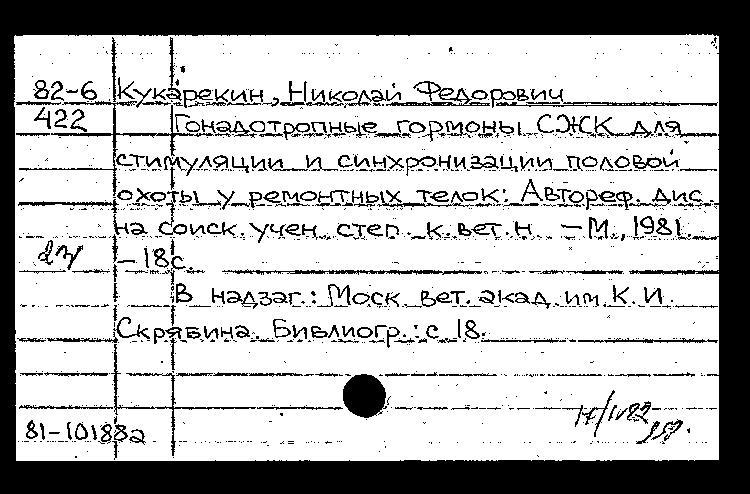 82-6 Кукарекин, Николай Федорович
422 Гонадотропные гормоны СЖК для
стимуляции и синхронизации половой
охоты у ремонтных телок: Автореф. дис.
на соиск. учен. степ. к. вет. н. - М., 1981.
- 18 с.
В надзаг.: Моск. вет. акад. им. К. И.
Скрябина. Библиогр.: с. 18.
17/IV82
81-101882